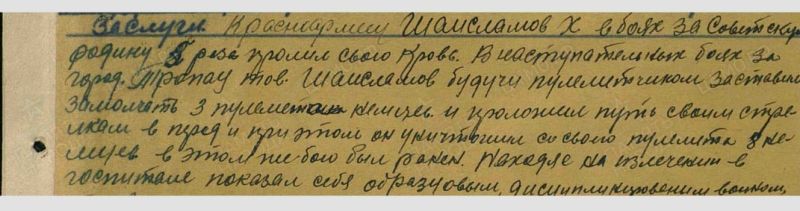 Заслуги Красноармеец Шаисламов Х в боях за Советскую
родину 3 раза пролил свою кровь. В наступательных боях за
город Тропау тов. Шаисламов будучи пулеметчиком заставил
замолчать 3 пулемета немцев и проложил путь своим стре-
лкам в перед и при этом он уничтожил со своего пулемета 8 не-
мцев в этом же бою был ранен. Находясь на излечении в
госпитале показал себя образцовым, дисциплинированим воином,